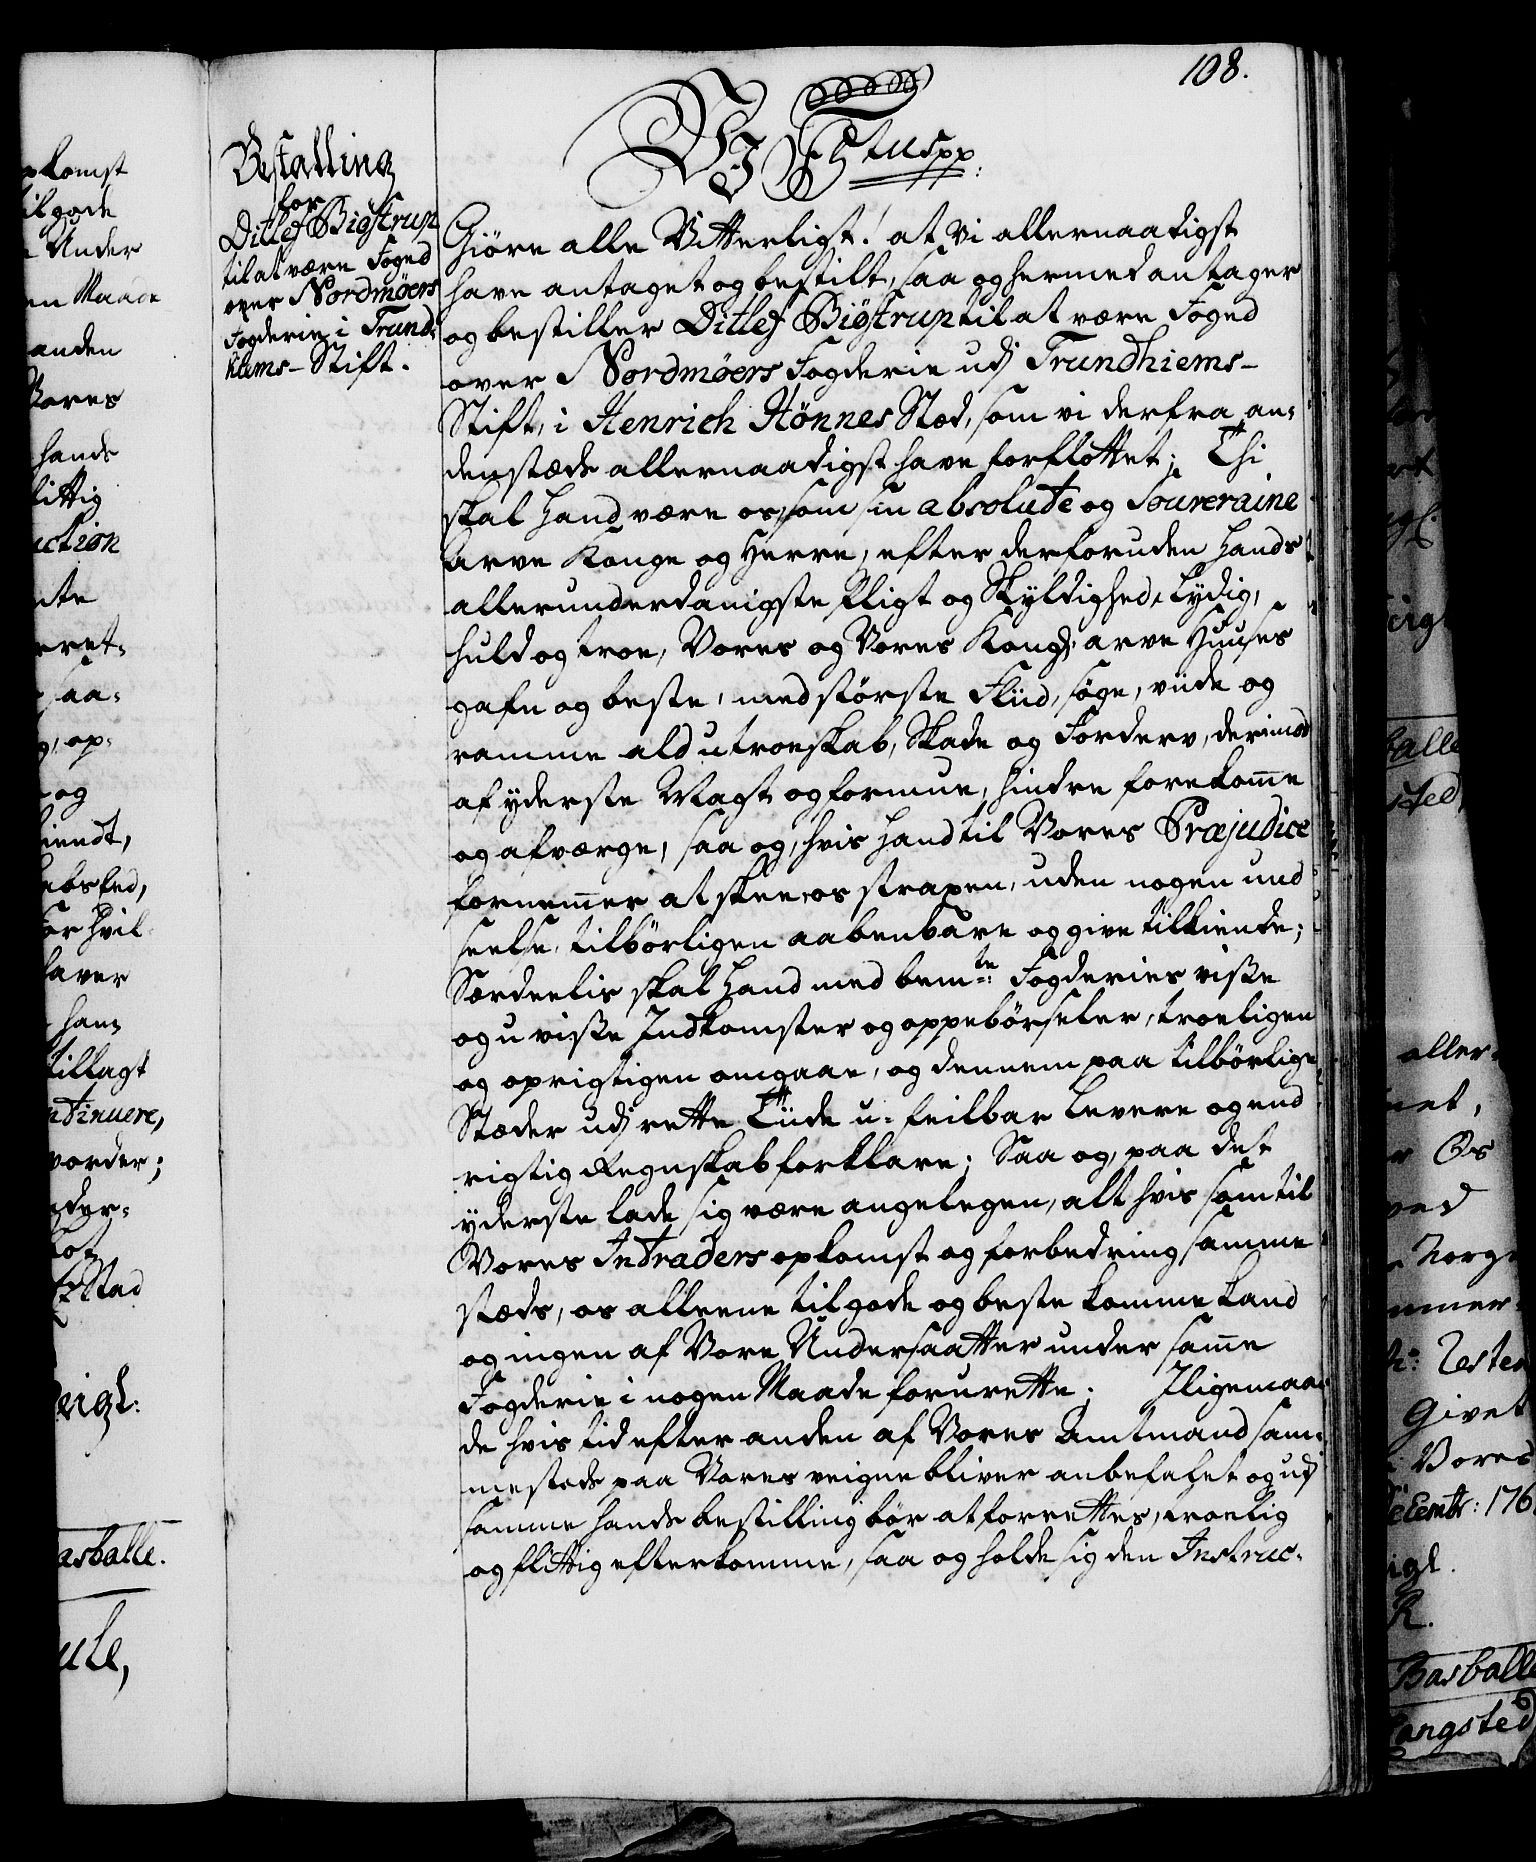 108.
Bestalling
for
Ditlef Biøstrup
til at være Foged
over Nordmøers
Fogderie i Trund-
hiems-Stift.
Vi F 5tus pp:
Giøre alle Vitterligt! at Vi allernaadigst
have antaget og bestilt, saa og hermed antager
og bestiller Ditlef Biøstrup til at være Foged
over Nordmøers Fogderie udj Trundhiems-
Stift, i Henrich Hønnes Stæd, som vi derfra an-
denstæds allernaadigst have forfløttet; Thi
skal hand være os, som sin absolute og Souveraine
Arve Konge og Herre, efter derforuden hands
allerunderdanigste Pligt og Skyldighed, lydig,
huld og troe, Vores og Vores Kongl: arve Huuses
gafn og beste, med største Fliid, søge, viide og
ramme ald utroeskab, Skade og Forderv, derimod
af yderste Magt og formue, hindre forekom̅e
og afværge, saa og, hvis hand til Vores Præjudice
fornem̅er at skee, os straxen, uden nogen und
seelse, tilbørligen aabenbare og give tilkiende;
Særdeelis skal hand med bem:te Fogderies visse
og u visse Indkomster og oppebørseler, troeligen
og oprigtigen omgaae, og dennem paa tilbørlige
Stæder udj rette Tiide u-feilbar levere og end
rigtig Regnskab forklare; Saa og, paa det
yderste lade sig være angelegen, alt hvis som til
Vores Intraders opkomst og forbedring samme
stæds, os alleene til gode og beste komme kand
og ingen af Vore Undersaatter under sam̅e
Fogderie i nogen Maade forurette; Iligemaa-
de hvis tid efter anden af Vores Amtmand sam-
mesteds paa Vores veigne bliver anbefalet og udj
samme hands bestilling bør at forrettes, troelig
og flittig efterkomme, saa og holde sig den Instruc-